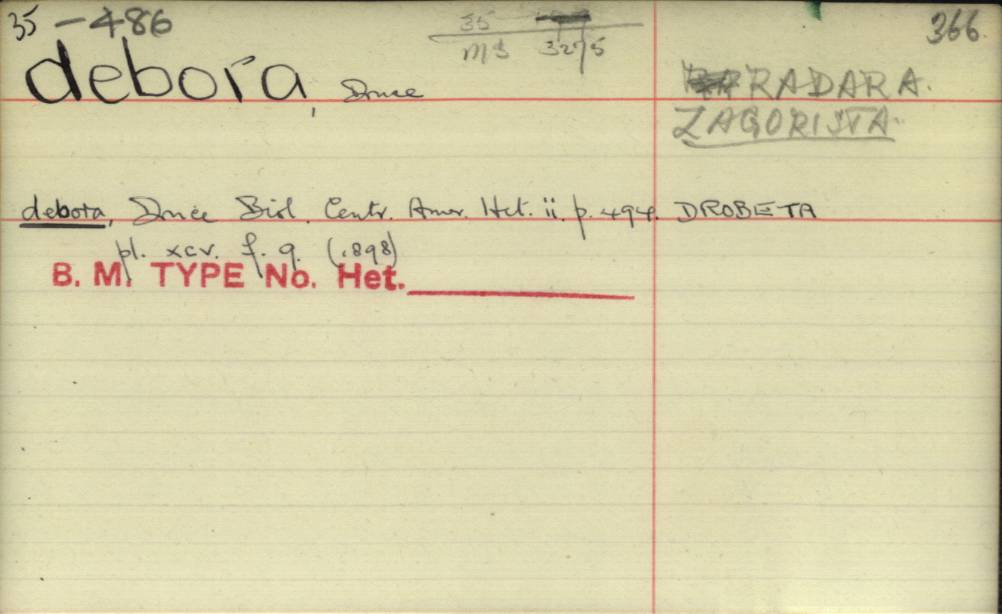 35-486
35
MS 3275
366
debora, Druce
RADARA.
ZAGORISTA.
debora, Druce Biol. Centr. Amer. Het. ii. p. 494. DROBETA
pl. xcv. f. 9. (1898)
B. M. TYPE No. Het.